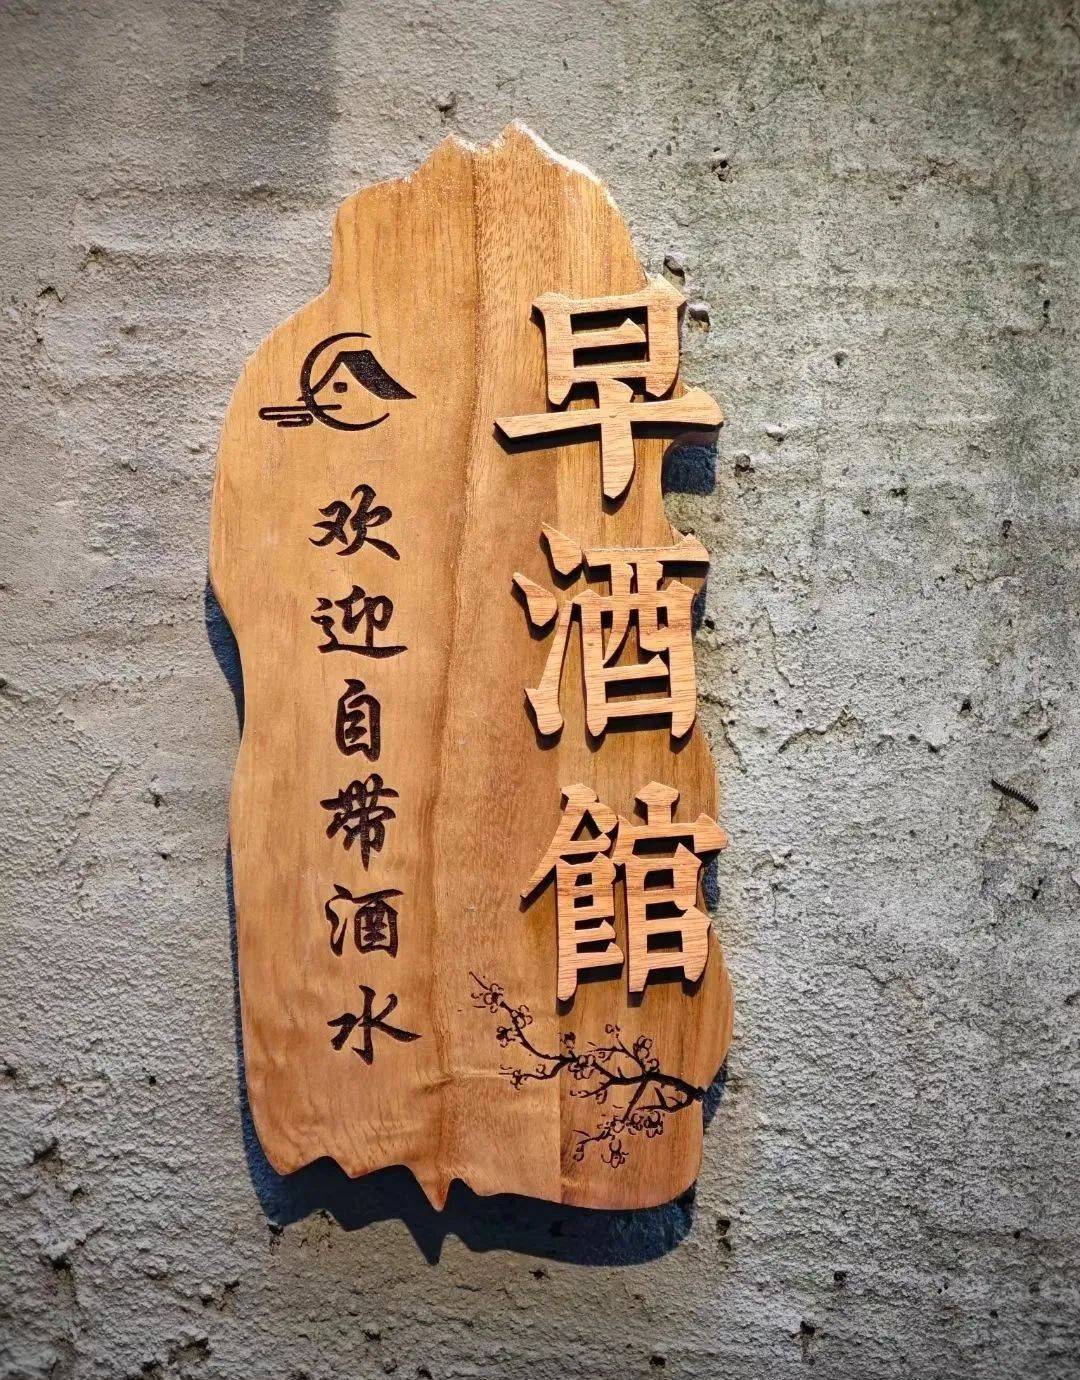 早酒館
欢迎自带酒水